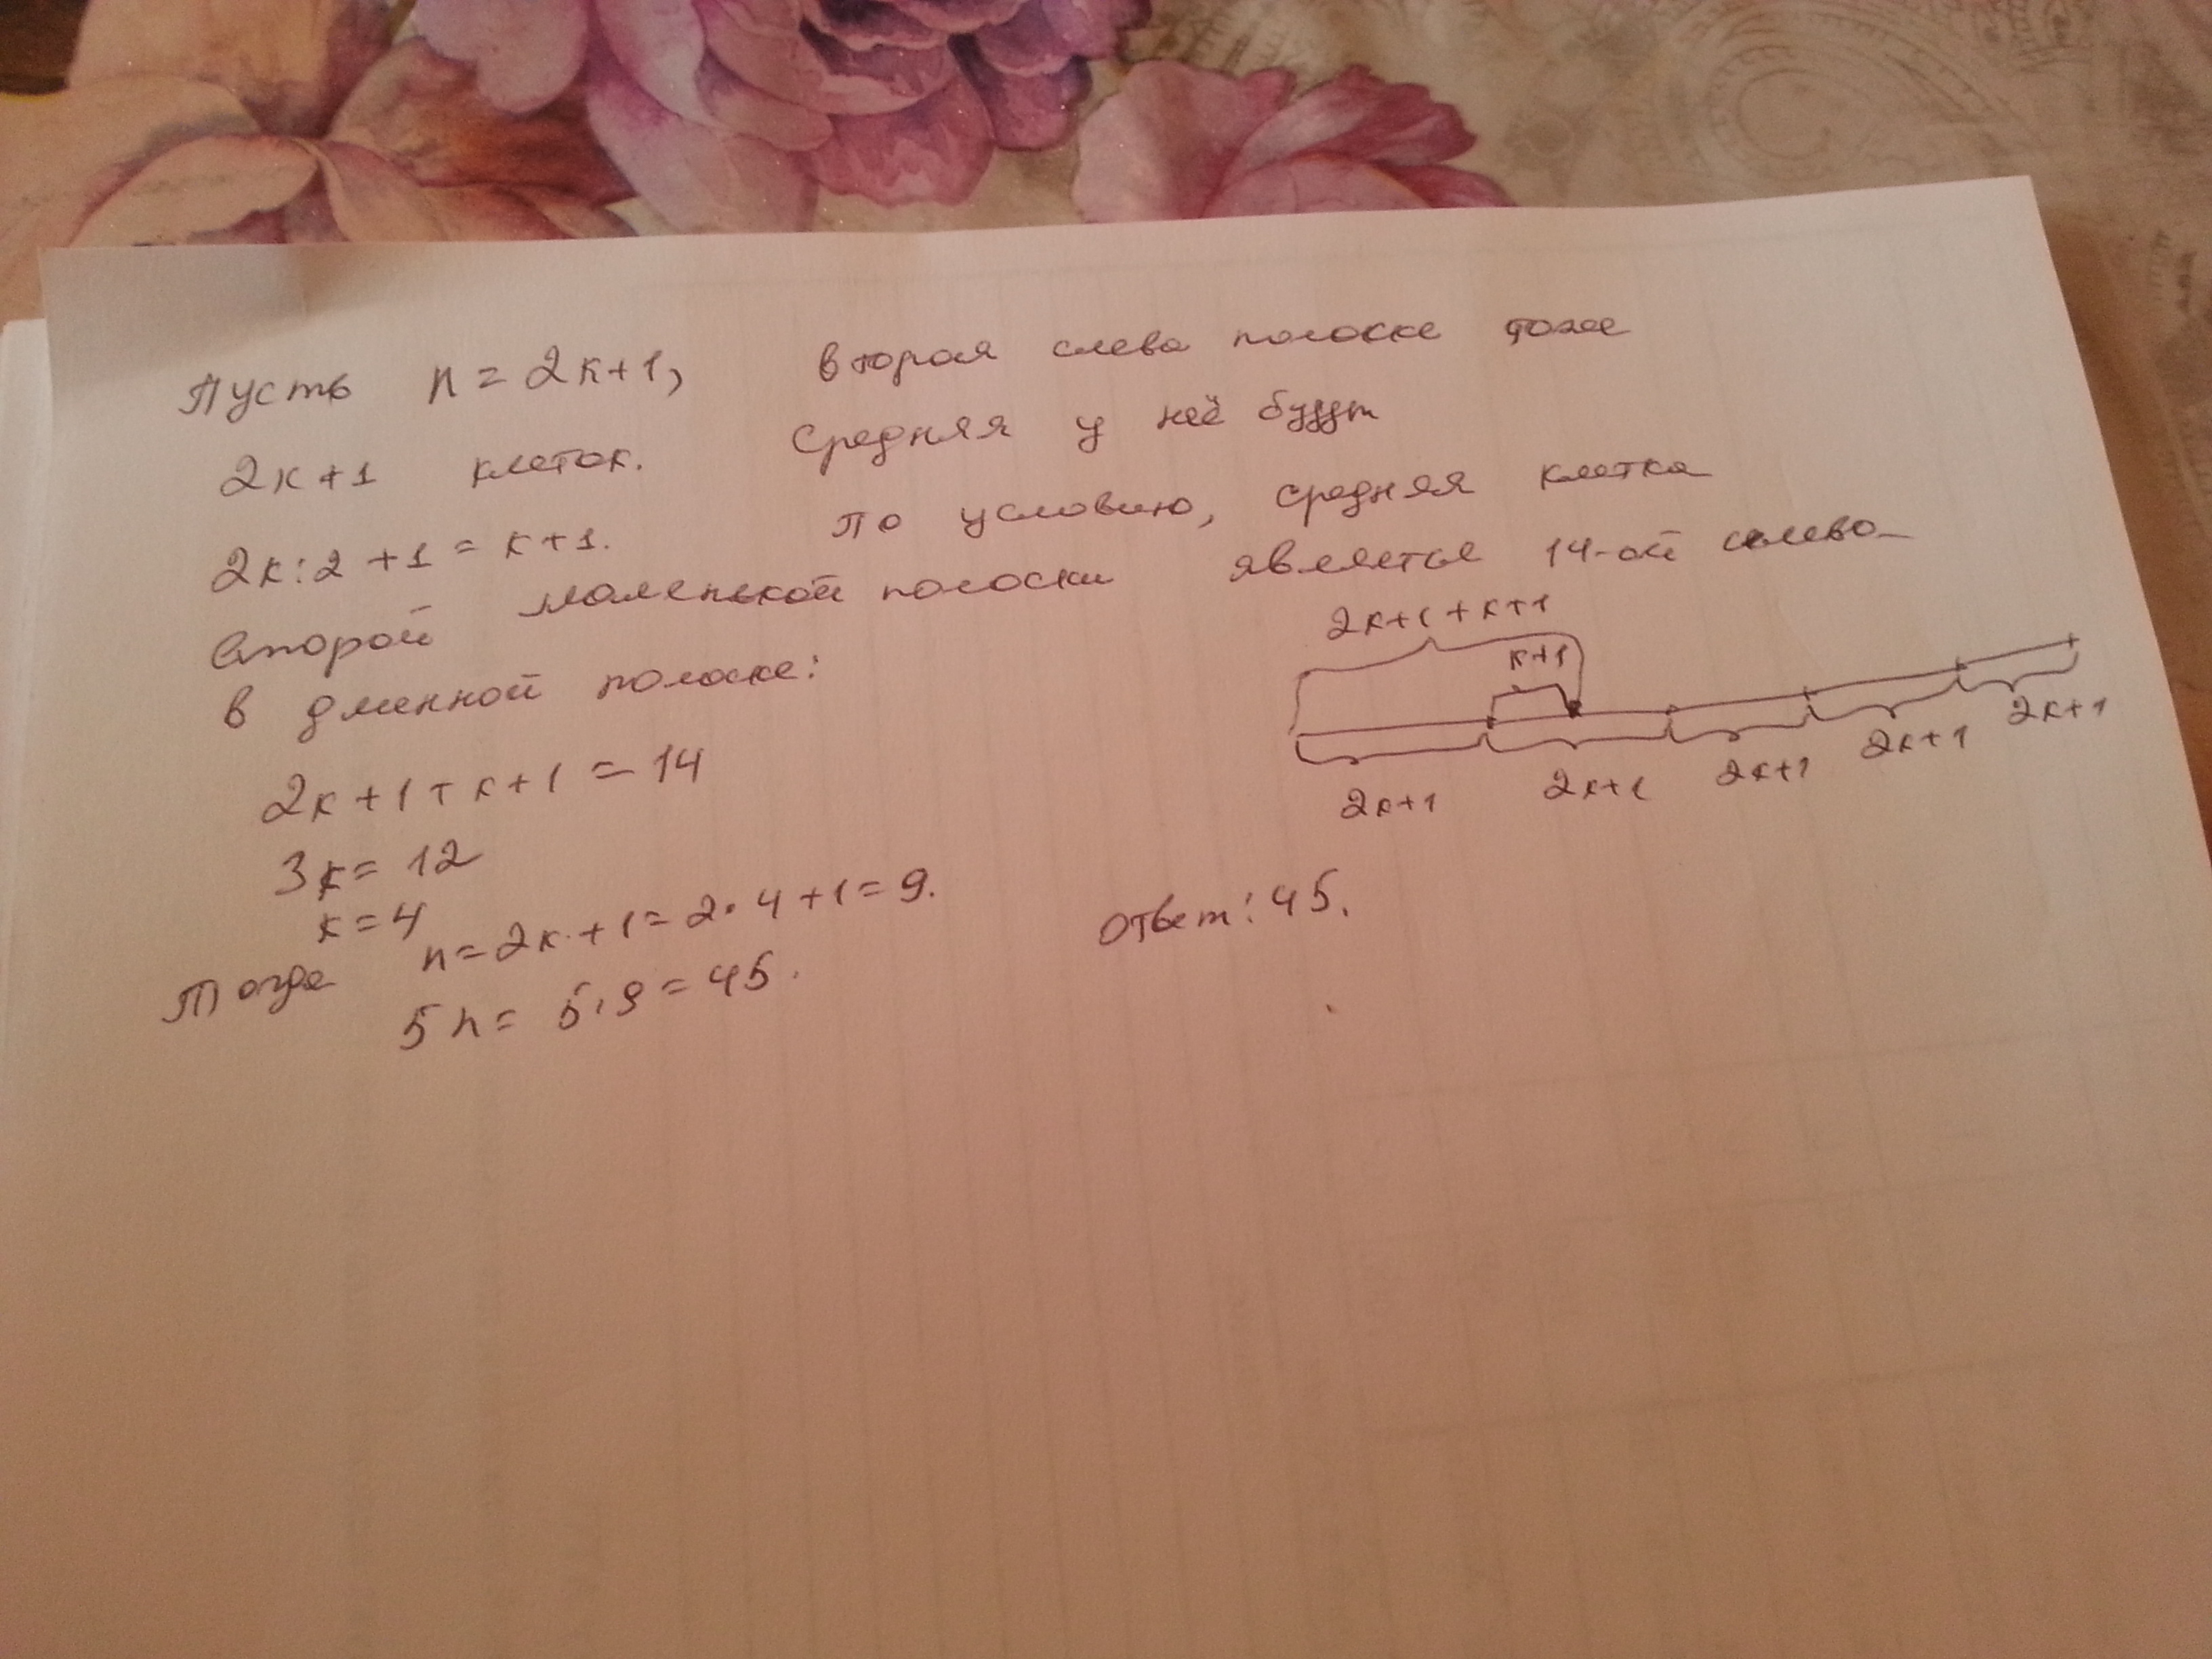 Пусть n = 2к+1, вторая слева полоске тоже
2к+1 клеток. Средняя у неё будет
2к:2+1 = к+1. По условию, средняя клетка
второй маленькой полоски является 14-ой слева
в длинной полоске:
2к+1+к+1
к+1
2к+1 2к+1 2к+1 2к+1 2к+1
2к+1+к+1 = 14
3к = 12
к = 4
Тогда n = 2к+1 = 2·4+1 = 9.
5n = 5·9 = 45.
Ответ: 45.